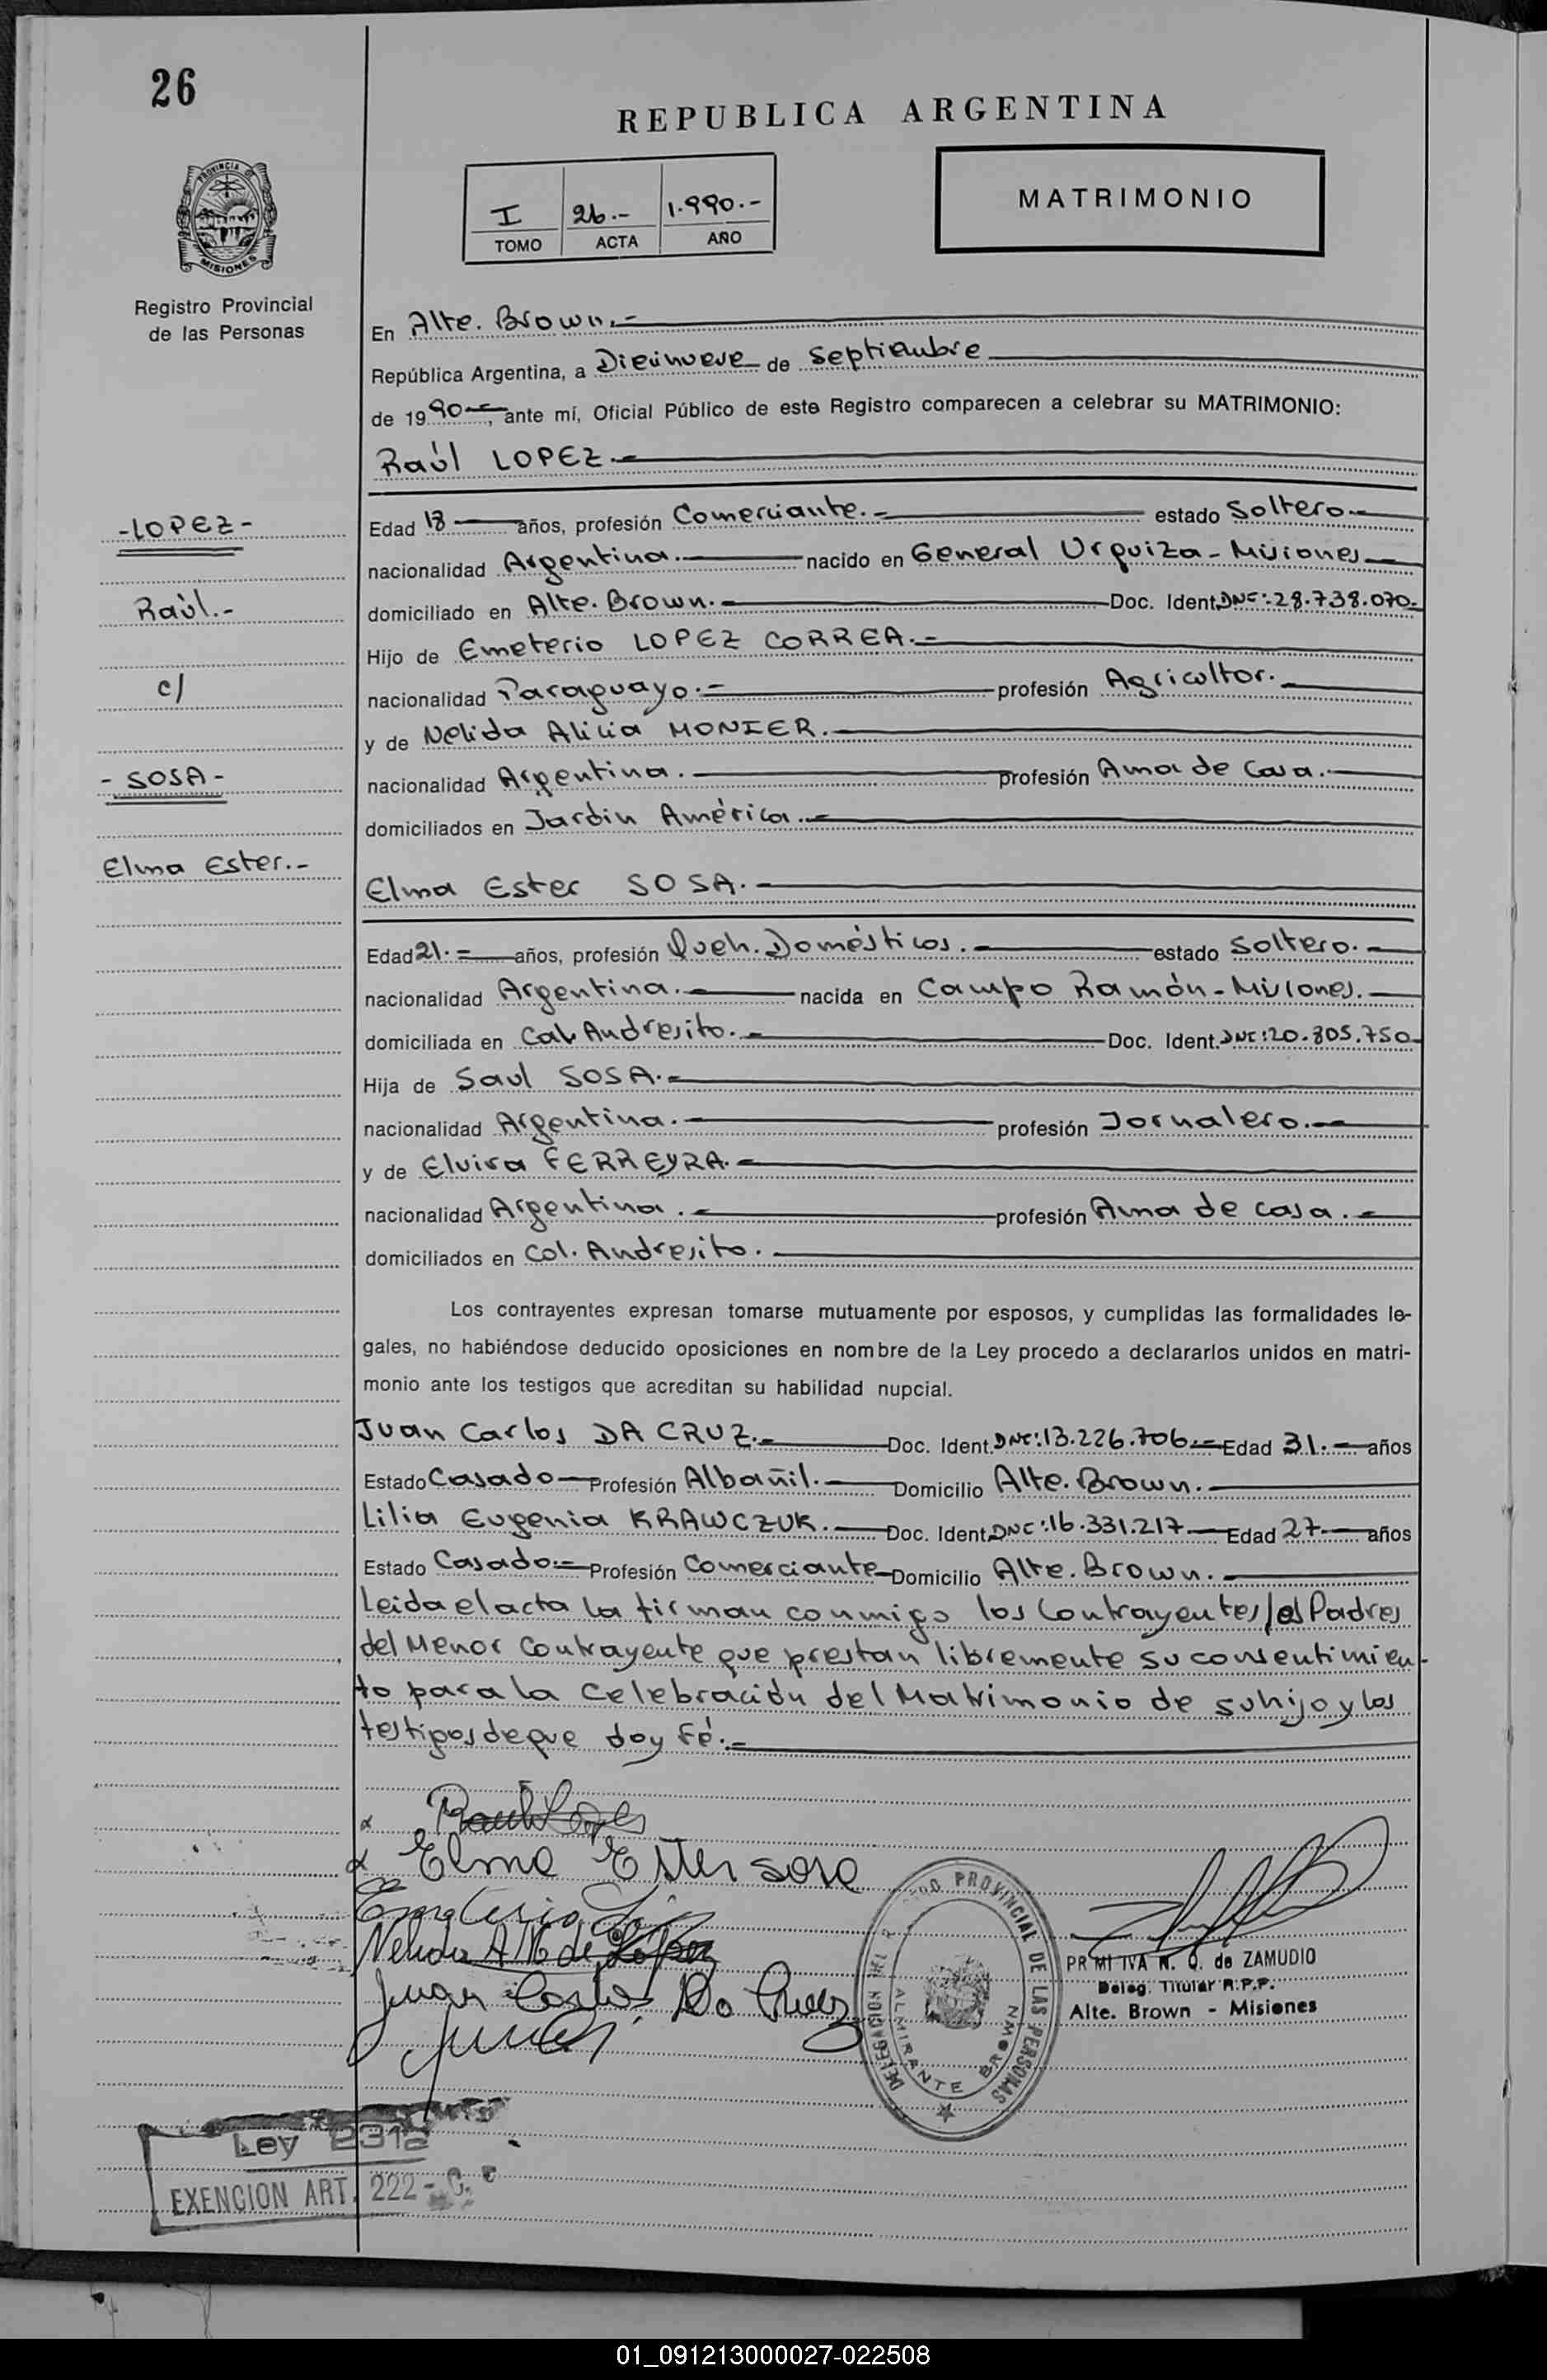 26
REPUBLICA ARGENTINA
PROVINCIA DE
MISIONES
I 26.- 1.990.-
TOMO ACTA AÑO
MATRIMONIO
Registro Provincial
de las Personas
En Alte. Brown.-
República Argentina, a Diecinueve de Septiembre
de 1990.-, ante mí, Oficial Público de este Registro comparecen a celebrar su MATRIMONIO:
Raúl LOPEZ.-
-LOPEZ-
Edad 18 años, profesión Comerciante.- estado Soltero.-
nacionalidad Argentina.- nacido en General Urquiza - Misiones
Raúl.-
domiciliado en Alte. Brown.- Doc. Ident. DNI: 28.738.070.-
Hijo de Emeterio LOPEZ CORREA.-
c/
nacionalidad Paraguayo.- profesión Agricultor.-
y de Nelida Alicia MONIER.-
- SOSA -
nacionalidad Argentina.- profesión Ama de Casa.-
domiciliados en Jardín América.-
Elma Ester.-
Elma Ester SOSA.-
Edad 21.- años, profesión Queh. Domésticos.- estado Soltero.-
nacionalidad Argentina.- nacida en Campo Ramón - Misiones.-
domiciliada en Cab. Andresito.- Doc. Ident. DNI: 20.805.750
Hija de Saul SOSA.-
nacionalidad Argentina.- profesión Jornalero.-
y de Elvira FERREYRA.-
nacionalidad Argentina.- profesión Ama de casa.-
domiciliados en Col. Andresito.
Los contrayentes expresan tomarse mutuamente por esposos, y cumplidas las formalidades le-
gales, no habiéndose deducido oposiciones en nombre de la Ley procedo a declararlos unidos en matri-
monio ante los testigos que acreditan su habilidad nupcial.
Juan Carlos DA CRUZ.- Doc. Ident. DNI: 13.226.706.- Edad 31.- años
Estado Casado Profesión Albañil.- Domicilio Alte. Brown.-
Lilia Eugenia KRAWCZUK.- Doc. Ident. DNI: 16.331.217 Edad 27 años
Estado Casado.- Profesión Comerciante Domicilio Alte. Brown.-
Leida el acta la firman conmigo los Contrayentes, los Padres
del Menor Contrayente que prestan libremente su consentimien-
to para la Celebración del Matrimonio de su hijo y los
testigos de que doy Fé.-
Raul Lopez
Elma Ester Sosa
Emeterio
Nelida A M de López
Juan Carlos Da Cruz
DELEGACION DEL REGISTRO PROVINCIAL DE LAS PERSONAS
ALMIRANTE BROWN
PRIMITIVA N. Q. de ZAMUDIO
Deleg. Titular R.P.P.
Alte. Brown - Misiones
Ley 2312
EXENCION ART. 222 - C.
01_091213000027-022508